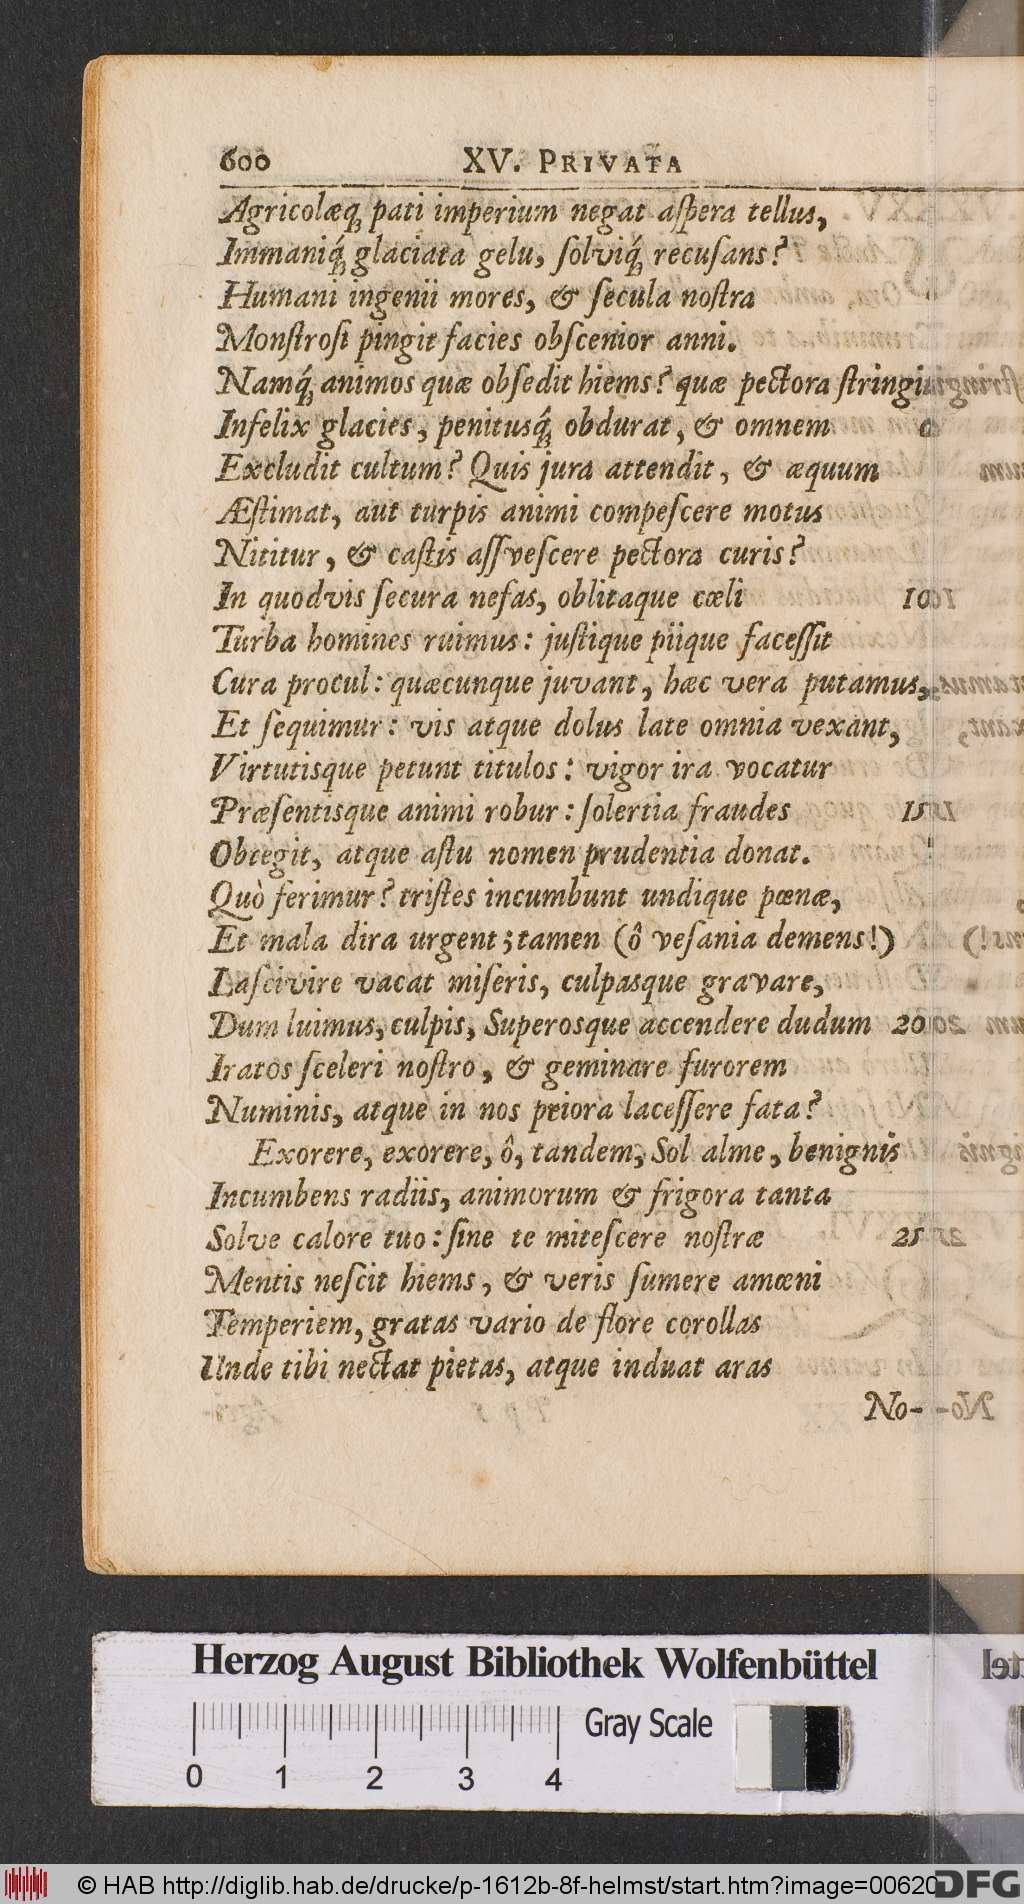 600 XV. PRIVATA
Agricolæq́; pati imperium negat aſpera tellus,
Immaniq́; glaciata gelu, ſolviq́; recuſans?
Humani ingenii mores, & ſecula noſtra
Monſtroſi pingit facies obſcenior anni.
Namq́; animos quæ obſedit hiems? quæ pectora ſtringit
Infelix glacies, penitusq́; obdurat, & omnem
Excludit cultum? Quis jura attendit, & æquum
Æſtimat, aut turpis animi compeſcere motus
Nititur, & caſtis aſſveſcere pectora curis?
In quodvis ſecura nefas, oblitaque cœli 10
Turba homines ruimus: juſtique piique faceſſit
Cura procul: quæcunque juvant, hæc vera putamus,
Et ſequimur: vis atque dolus late omnia vexant,
Virtutisque petunt titulos: vigor ira vocatur
Præſentisque animi robur: ſolertia fraudes 15
Obtegit, atque aſtu nomen prudentia donat.
Quò ferimur? triſtes incumbunt undique pœnæ,
Et mala dira urgent; tamen (ô veſania demens!)
Laſcivire vacat miſeris, culpasque gravare,
Dum luimus, culpis, Superosque accendere dudum 20
Iratos ſceleri noſtro, & geminare furorem
Numinis, atque in nos peiora laceſſere fata?
Exorere, exorere, ô, tandem, Sol alme, benignis
Incumbens radiis, animorum & frigora tanta
Solve calore tuo: ſine te miteſcere noſtræ 25
Mentis neſcit hiems, & veris ſumere amœni
Temperiem, gratas vario de flore corollas
Unde tibi nectat pietas, atque induat aras
No-
Herzog August Bibliothek Wolfenbüttel
Gray Scale
0 1 2 3 4
© HAB http://diglib.hab.de/drucke/p-1612b-8f-helmst/start.htm?image=00620
DFG